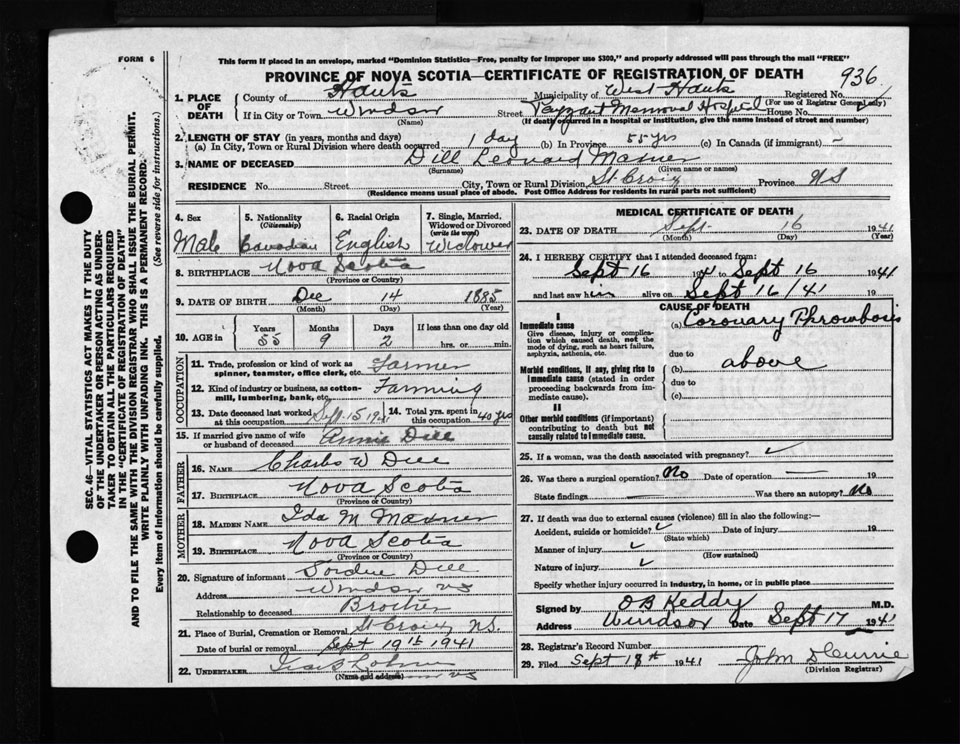 FORM 6
This form if placed in an envelope, marked "Dominion Statistics—Free, penalty for improper use $300," and properly addressed will pass through the mail "FREE"
PROVINCE OF NOVA SCOTIA—CERTIFICATE OF REGISTRATION OF DEATH
936
1. PLACE OF DEATH County of Hants Municipality of West Hants Registered No.
(For use of Registrar General only)
If in City or Town Windsor Street Payzant Memorial Hospital House No.
(Name) (If death occurred in a hospital or institution, give the name instead of street and number)
2. LENGTH OF STAY (in years, months and days)
(a) In City, Town or Rural Division where death occurred 1 day (b) In Province 55 yrs (c) In Canada (if immigrant) —
3. NAME OF DECEASED Dill Leonard Maxner
(Surname) (Given name or names)
RESIDENCE No. Street City, Town or Rural Division St Croix Province N S
(Residence means usual place of abode. Post Office Address for residents in rural parts not sufficient)
4. Sex Male
5. Nationality (Citizenship) Canadian
6. Racial Origin English
7. Single, Married, Widowed or Divorced (write the word) Widower
8. BIRTHPLACE Nova Scotia
(Province or Country)
9. DATE OF BIRTH Dec 14 1885
(Month) (Day) (Year)
10. AGE in Years 55 Months 9 Days 2 If less than one day old hrs. or min.
OCCUPATION
11. Trade, profession or kind of work as spinner, teamster, office clerk, etc. Farmer
12. Kind of industry or business, as cotton-mill, lumbering, bank, etc. Farming
13. Date deceased last worked at this occupation Sept. 15 1941
14. Total yrs. spent in this occupation 40 yrs
15. If married give name of wife or husband of deceased Annie Dill
FATHER
16. NAME Charles W Dill
17. BIRTHPLACE Nova Scotia
(Province or Country)
MOTHER
18. MAIDEN NAME Ida M Maxner
19. BIRTHPLACE Nova Scotia
(Province or Country)
20. Signature of informant Dill
Address Windsor NS
Relationship to deceased Brother
21. Place of Burial, Cremation or Removal St Croix N.S.
Date of burial or removal Sept 19th 1941
22. UNDERTAKER
(Name and address)
MEDICAL CERTIFICATE OF DEATH
23. DATE OF DEATH Sept. 16 1941
(Month) (Day) (Year)
24. I HEREBY CERTIFY that I attended deceased from:
Sept 16 1941 to Sept 16 1941
and last saw him alive on Sept 16/41 19
CAUSE OF DEATH
I
Immediate cause
Give disease, injury or complication which caused death, not the mode of dying, such as heart failure, asphyxia, asthenia, etc.
(a) Coronary Thrombosis
due to
Morbid conditions, if any, giving rise to immediate cause (stated in order proceeding backwards from immediate cause).
(b) above
due to
(c)
II
Other morbid conditions (if important) contributing to death but not causally related to immediate cause.
25. If a woman, was the death associated with pregnancy? ✓
26. Was there a surgical operation? No Date of operation — 19
State findings — Was there an autopsy? No
27. If death was due to external causes (violence) fill in also the following:
Accident, suicide or homicide? ✓ Date of injury 19
(State which)
Manner of injury ✓
(How sustained)
Nature of injury ✓
Specify whether injury occurred in industry, in home, or in public place
Signed by O B Keddy M.D.
Address Windsor Date Sept 17 1941
28. Registrar's Record Number
29. Filed Sept 18th 1941 John Currie
(Division Registrar)
SEC. 46—VITAL STATISTICS ACT MAKES IT THE DUTY
OF THE UNDERTAKER OR PERSON ACTING AS UNDER-
TAKER TO OBTAIN ALL THE PARTICULARS REQUIRED
IN THE "CERTIFICATE OF REGISTRATION OF DEATH"
AND TO FILE THE SAME WITH THE DIVISION REGISTRAR WHO SHALL ISSUE THE BURIAL PERMIT.
WRITE PLAINLY WITH UNFADING INK. THIS IS A PERMANENT RECORD.
Every item of Information should be carefully supplied. (See reverse side for instructions.)